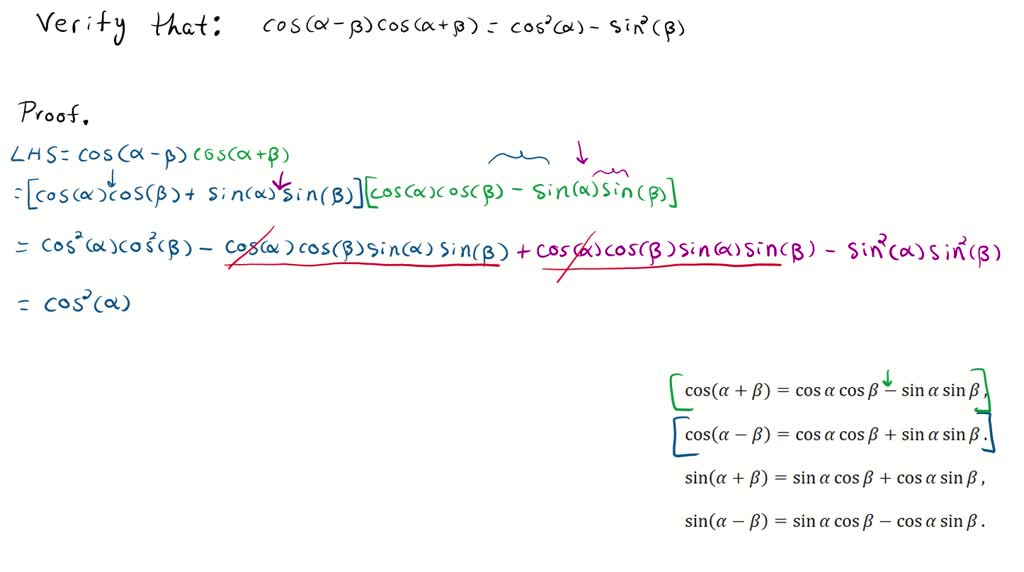 Verify that: cos(α-β)cos(α+β) = cos²(α) - sin²(β)
Proof.
LHS = cos(α-β) cos(α+β)
= [cos(α)cos(β) + sin(α)sin(β)][cos(α)cos(β) - sin(α)sin(β)]
= cos²(α)cos²(β) - cos(α)cos(β)sin(α)sin(β) + cos(α)cos(β)sin(α)sin(β) - sin²(α)sin²(β)
= cos²(α)
cos(α + β) = cos α cos β − sin α sin β ,
cos(α − β) = cos α cos β + sin α sin β .
sin(α + β) = sin α cos β + cos α sin β ,
sin(α − β) = sin α cos β − cos α sin β .